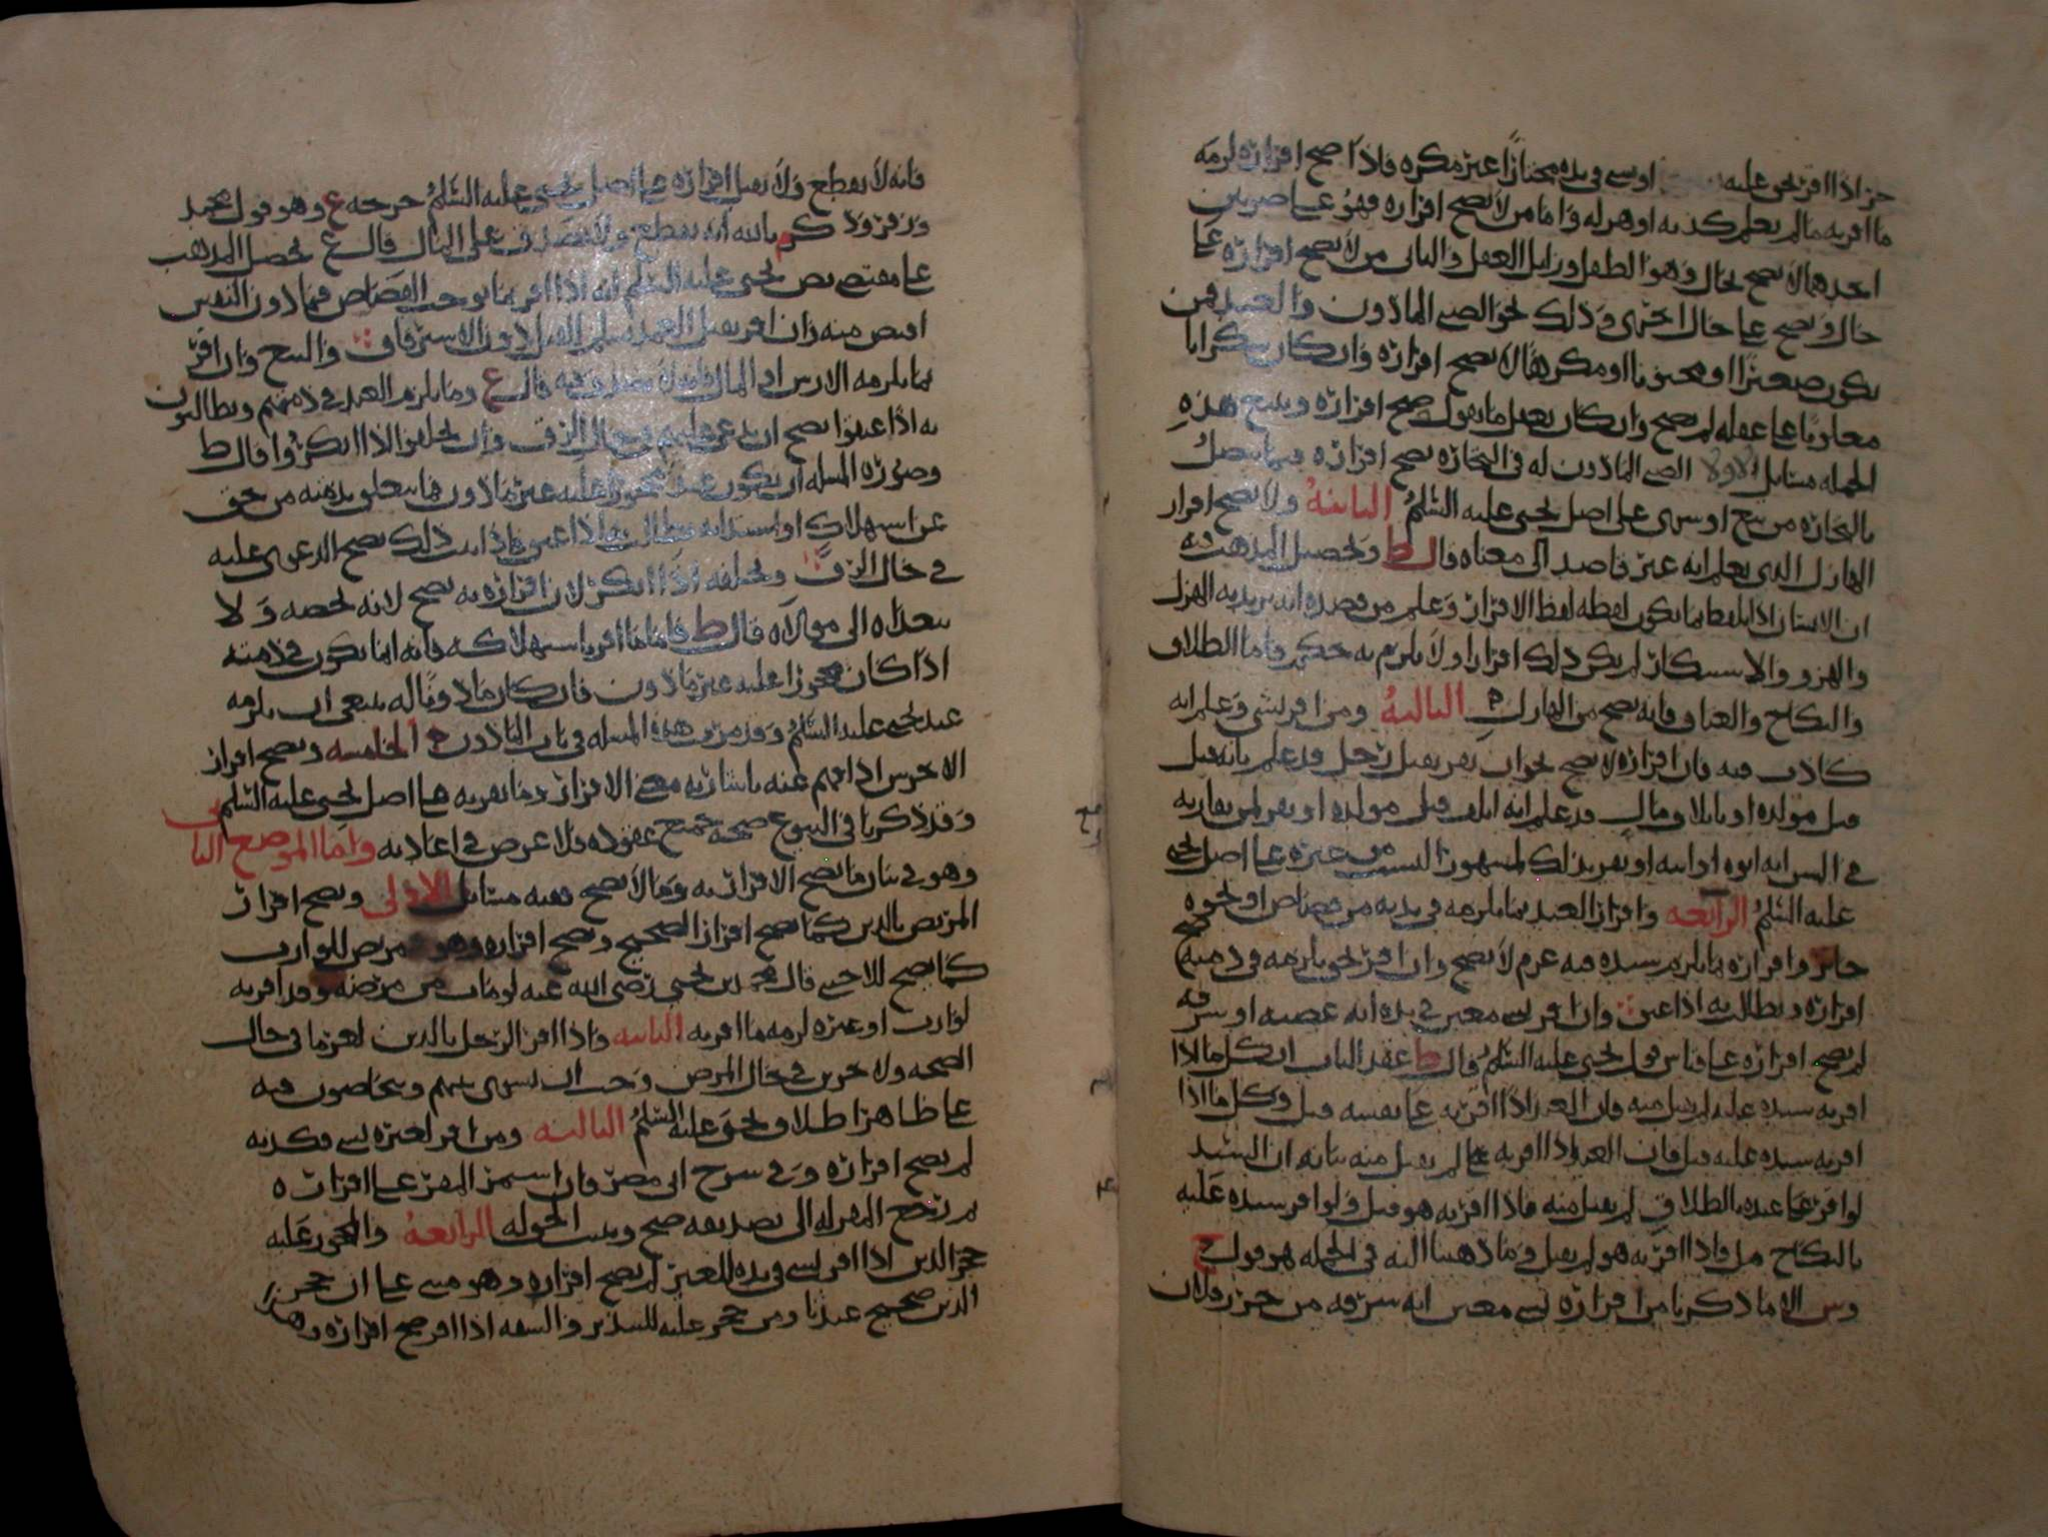 حر اذا اقر بحق عليه او شي في يده مختارا غير مكره فاذا صح اقراره لزمه
ما اقر به ما لم يعلم كذبه او هزله واما من لا يصح اقراره فهو على ضربين
احدهما لا يصح بحال وهو الطفل وزايل العقل والثاني من لا يصح اقراره على
حال ويصح على حال اخرى وذلك نحو الصبي الماذون والعبد فمن
يكون صغيرا او مجنونا او مكرها لا يصح اقراره وان كان سكرانا
مغلوبا على عقله لم يصح وان كان يعقل ما يقول صح اقراره ويتبع هذه
الجمله مسايل الاولى الصبي الماذون له في التجاره يصح اقراره فيما يتصل
بالتجاره من بيع او شرى على اصل يحيى عليه السلم الثانيه ولا يصح اقرار
الهازل الذي يعلم انه غير قاصد الى معناه قال ط وتحصيل المذهب فيه
ان الانسان اذا تلفظ بما يكون لفظه لفظ الاقرار وعلم من قصده انه يريد به الهزل
والهزو والاستنكار لم يكن ذلك اقرارا ولا يلزم به حكم فاما الطلاق
والنكاح والعتاق فانه يصح من الهازل الثالثه ومن اقر بشي وعلم انه
كاذب فيه فان اقراره لا يصح نحو ان يقر بقتل رجل قد علم بانه قتل
قبل مولده او باتلاف مال قد علم انه اتلف قبل مولده او يقر لمن يقاربه
في السن انه ابوه او ابنه او يقر بذلك لمشهور النسب من غيره على اصل يحيى
عليه السلم الرابعه واقرار العبد بما يلزمه في بدنه من قصاص او نحوه
جايز واقراره بما يلزم سيده فيه غرم لا يصح وان اقر بحق يلزمه في ذمته صح
اقراره ويطالب به اذا عتق وان اقر لشي معين في يده انه غصبه او سرقه
لم يصح اقراره على قياس قول يحيى عليه السلم قال ط عقد الباب ان كل ما اذا
اقر به سيده عليه لم يقبل منه فان العبد اذا اقر به على نفسه قبل وكل ما اذا
اقر به سيده عليه قبل فان العبد اذا اقر به لم يقبل منه بيانه ان السيد
لو اقر على عبده بالطلاق لم يقبل منه فاذا اقر به هو قبل ولو اقر سيده عليه
بالنكاح قبل واذا اقر به هو لم يقبل وما ذهبنا اليه في الجمله هو قول ح
وش الا ما ذكرنا من اقراره لشي معين انه سرقه من حرز فلان
فانه لا يقطع ولا يقبل اقراره على اصل يحيى عليه السلم خرجه ع وهو قول محمد
وزفر وذكر م بالله انه يقطع ولا يصدق على المال قال ع تحصيل المذهب
على مقتضى نص يحيى عليه السلم انه اذا اقر بما يوجب القصاص فيما دون النفس
اقتص منه وان اقر بقتل العمد سلم للقتل دون الاسترقاق والبيع وان اقر
بما يلزمه الارش او المال فانه لا يصدق فيه قال ع وما يلزم العبيد في ذممهم ويطالبون
به اذا عتقوا يصح ان يدعى عليهم في حال الرق وان يحلفوا اذا انكروا قال ط
وصوره المسله ان يكون عبد محجورا عليه غير ماذون فما يتعلق بذمته من حق
عن استهلاك او استدانه يطالب به اذا عتق فاذا ثبت ذلك يصح الدعوى عليه
في حال الرق وتحليفه اذا انكر لان اقراره به يصح لانه يخصه ولا
يتعداه الى مولاه قال ط فاما ما اقر باستهلاكه فانه انما يكون في ذمته
اذا كان محجورا عليه غير ماذون فان كان ماذونا له ينبغي ان يلزمه
عند يحيى عليه السلم وقد مرت هذه المسله في باب الماذون الخامسه ويصح اقرار
الاخرس اذا فهم عنه باشارته معنى الاقرار وما يقر به على اصل يحيى عليه السلم
وقد ذكرنا في البيوع صحه جميع عقوده فلا غرض في اعادته واما الموضع الثاني
وهو في بيان ما يصح الاقرار به وما لا يصح ففيه مسايل الاولى ويصح اقرار
المريض بالدين كما يصح اقرار الصحيح ويصح اقراره وهو مريض للوارث
كما يصح للاجنبي قال محمد بن يحيى رضي الله عنه لو مات من مرضه وقد اقر به
لوارث او غيره لزمه ما اقر به الثانيه واذا اقر الرجل بالدين لغرما في حال
الصحه ولاخرين في حال المرض وجب ان يسوى بينهم ويتحاصون فيه
على ظاهر اطلاق يحيى عليه السلم الثالثه ومن اقر لغيره بشي فكذبه
لم يصح اقراره وفي شرح ابي مضر فان استمر المقر على اقراره
ثم رجع المقر له الى تصديقه صح ويثبت الحق له الرابعه والمحجور عليه
حجر الدين اذا اقر لشي في يده للغير لم يصح اقراره وهو مبني على ان حجر
الدين صحيح عندنا ومن حجر عليه للتبذير والسفه اذا اقر صح اقراره وهذا